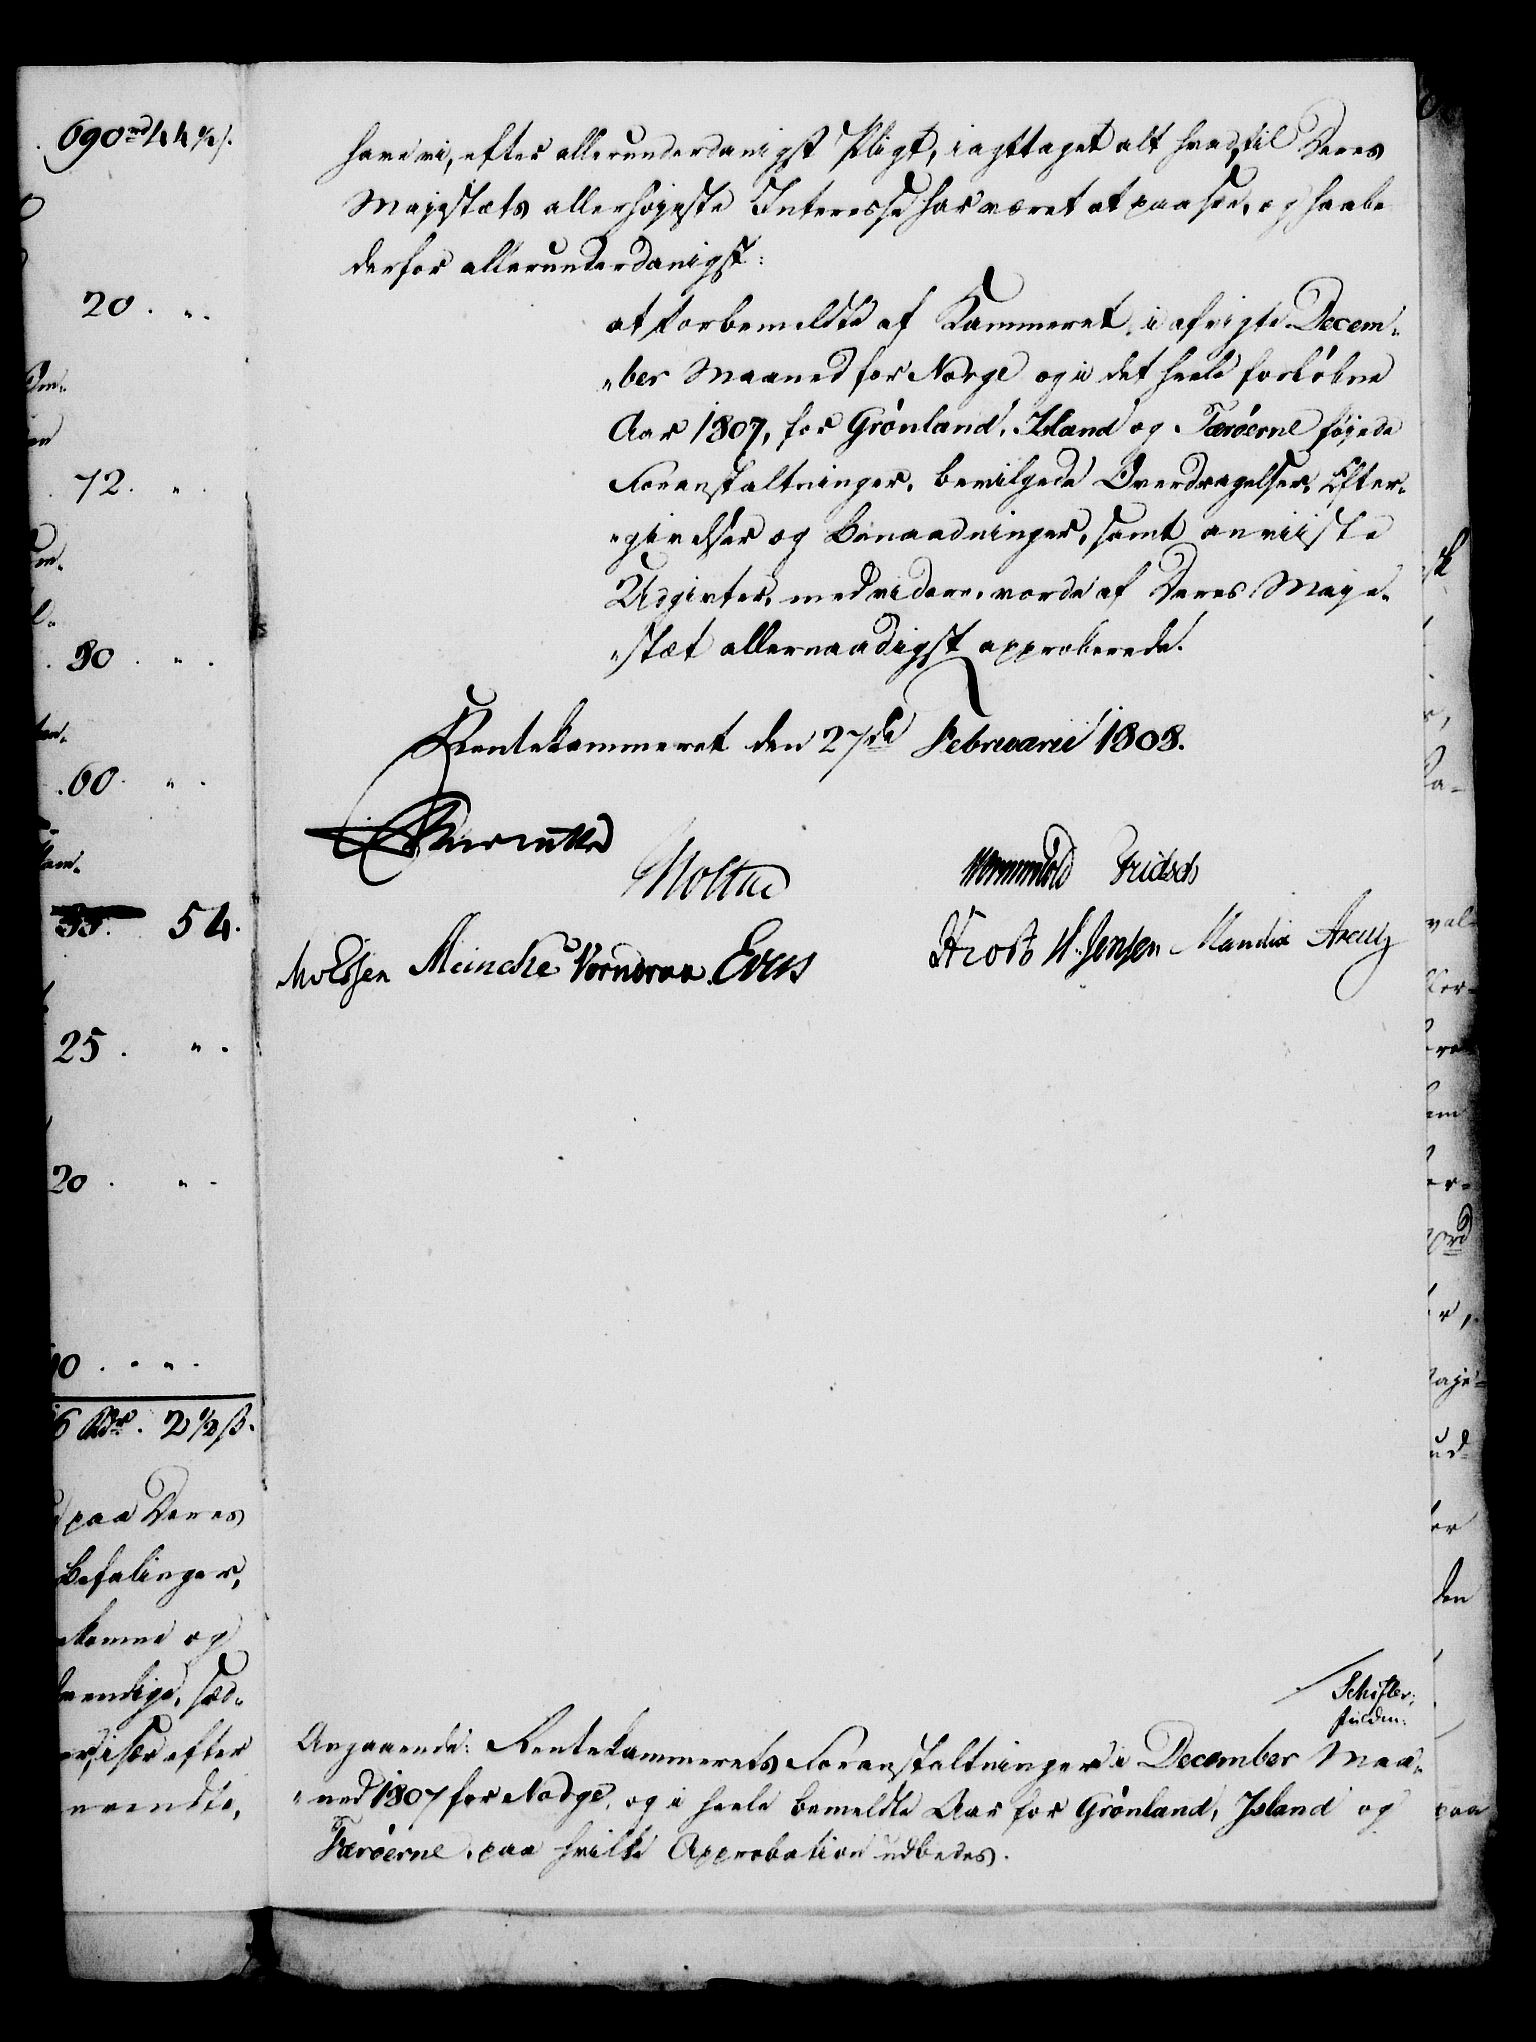 690 rd 44 ½ ſ.
20. „.
72. „.
30. „.
60. „.
54.
25. „.
20. „.
6 Rdr. 2 ½ ß.
paa Deres
Befalinger,
og
efter
have vi, efter allerunderdanigst Pligt, iagttaget alt hvad til Deres
Majestæts allerhøjeste Interesse har været at paasee, og haabe
derfor allerunderdanigst:
at forbemeldte af Kammeret, i afvigte Decem„
„ber Maaned for Norge og i det heele forløbne
Aar 1807, for Grönland, Island og Færöerne føjede
Foranstaltninger, bevilgede Overdragelser, Efter„
„givelser og Benaadninger, samt anviiste
Udgivter, med videre, vorde af Deres Maje„
„stæt allernaadigst approberede.
Rentekammeret den 27de Februarii 1808.
Moltke
Wormskiold Fridsch
Meincke Vorndran. Evers
Frost H. Jensen Mandix
Schifter,
Angaaende: Rentekammerets Foranstaltninger i December Maa„
„ned 1807 for Norge, og i heele bemeldte Aar for Grönland, Island og
Færöerne, paa hvilke Approbation udbedes.